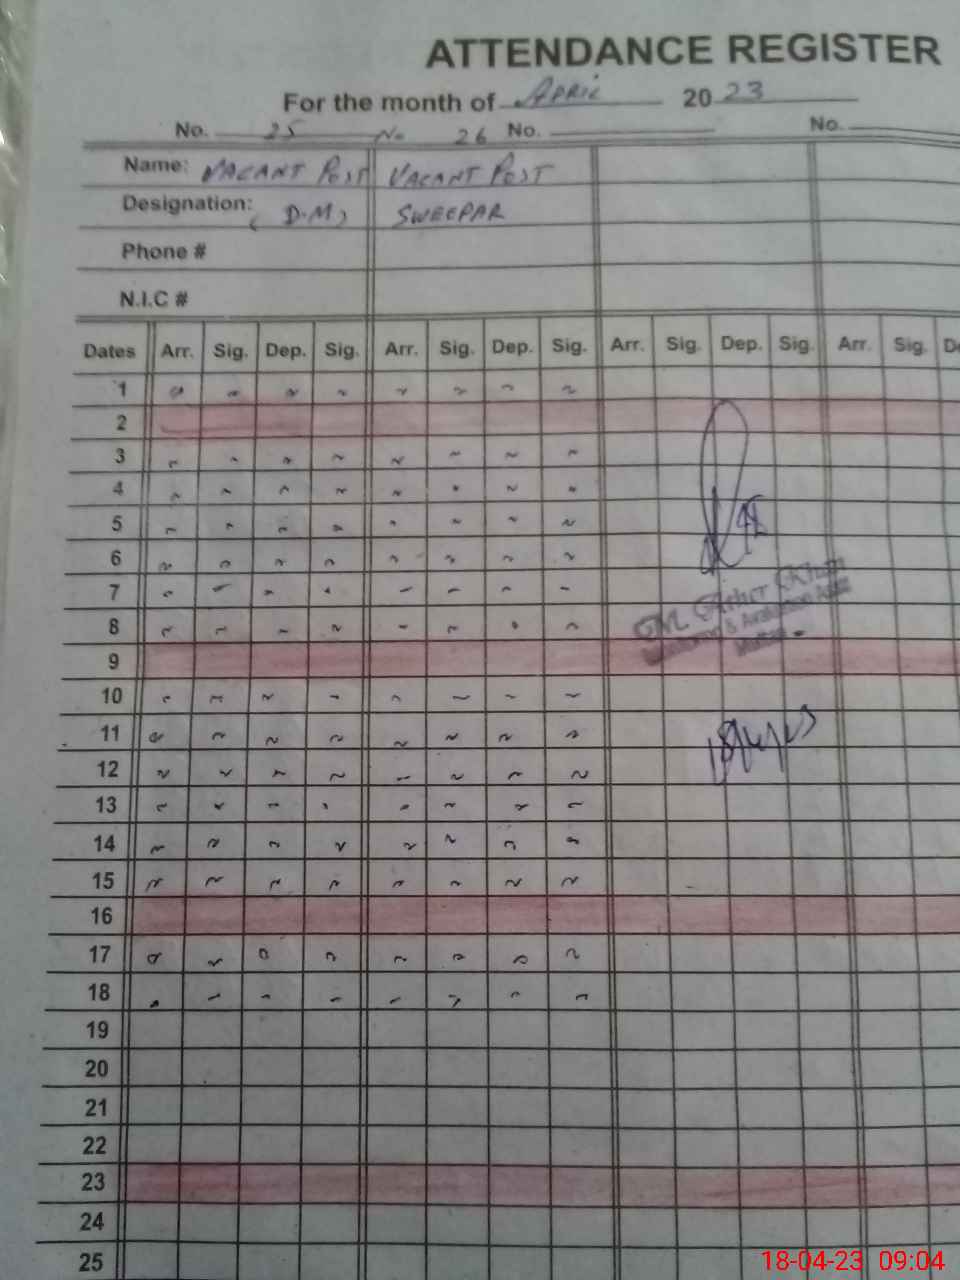 ATTENDANCE REGISTER
For the month of APRIL 2023
No. 25 No 26 No. No.
Name: VACANT POST VACANT POST
Designation: (D.M) SWEEPAR
Phone #
N.I.C #
Dates Arr. Sig. Dep. Sig. Arr. Sig. Dep. Sig. Arr. Sig. Dep. Sig. Arr. Sig. De
1
2
3
4
5
6
7
8
9
10
11
12
13
14
15
16
17
18
19
20
21
22
23
24
25
Khan
&
18/4/23
18-04-23 09:04